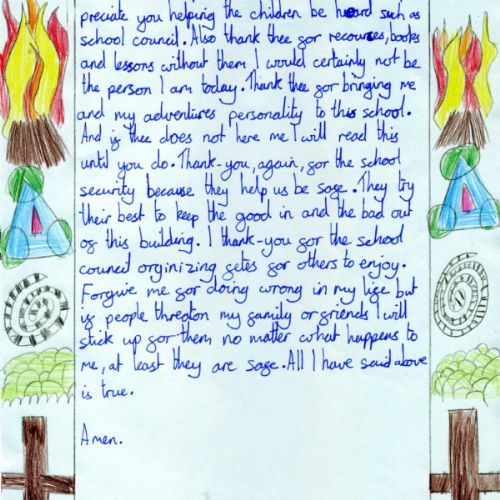 preciate you helping the children be heard such as
school council. Also thank thee for recources, books
and lessons without them I would certainly not be
the person I am today. Thank thee for bringing me
and my adventures personality to this school.
And if thee does not here me I will read this
until you do. Thank-you, again, for the school
security because they help us be safe. They try
their best to keep the good in and the bad out
of this building. I thank-you for the school
council orginizing fetes for others to enjoy.
Forgive me for doing wrong in my life but
if people threaton my family or friends I will
stick up for them no matter what happens to
me, at least they are safe. All I have said above
is true.
Amen.